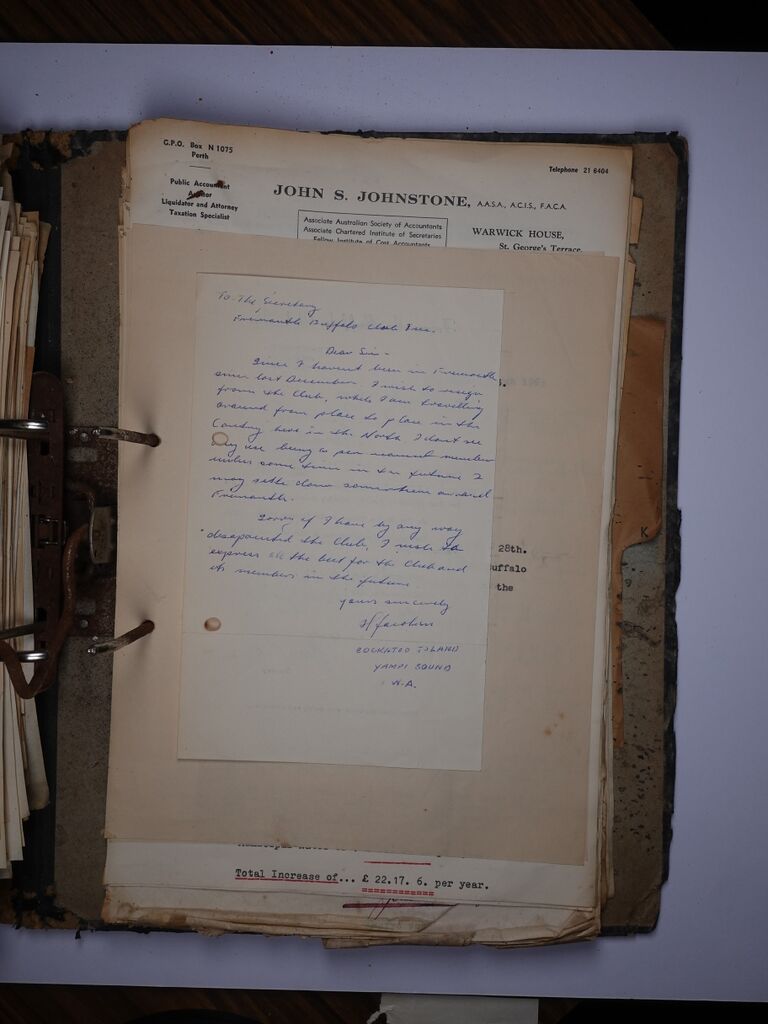 G.P.O. Box N 1075
Perth
Telephone 21 6404
Public Accountant
Liquidator and Attorney
Taxation Specialist
JOHN S. JOHNSTONE, A.A.S.A., A.C.I.S., F.A.C.A.
Associate Australian Society of Accountants
Associate Chartered Institute of Secretaries
Fellow Institute of Cost Accountants
WARWICK HOUSE,
St. George's Terrace,
To The Secretary
Fremantle Buffalo Club Inc.
Dear Sir-
Since I havent been in Fremantle
since last December I wish to resign
from the Club, while I am travelling
around from place to place in the
Country here in the North I dont see
any use being a member
unless some time in the future I
may settle down somewhere around
Fremantle.
Sorry if I have by any way
desapointed the Club, I wish to
express all the best for the Club and
its members in the future
yours sincerely
COCKATOO ISLAND
YAMPI SOUND
W.A.
28th.
uffalo
the
K
Total Increase of... £ 22.17. 6. per year.